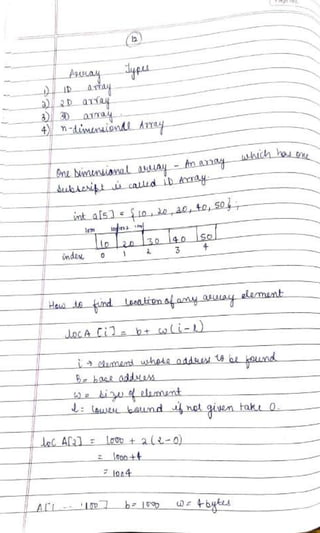 12
Array Types
1) 1D array
2) 2D array
3) 3D array
4) n-dimensional Array
One Dimensional array - An array which has one
subscript is called 1D Array
int a[5] = {10, 20, 30, 40, 50};
1000
10 20 30 40 50
index 0 1 2 3 4
How to find location of any array element
loc A [i] = b + w(i-l)
i → element whose address to be found
b = base address
w = size of element
l = lower bound if not given take 0.
loc A[2] = 1000 + 2(2-0)
= 1000+4
= 1004
A[1 --- 100] b = 1000 w = 4 bytes